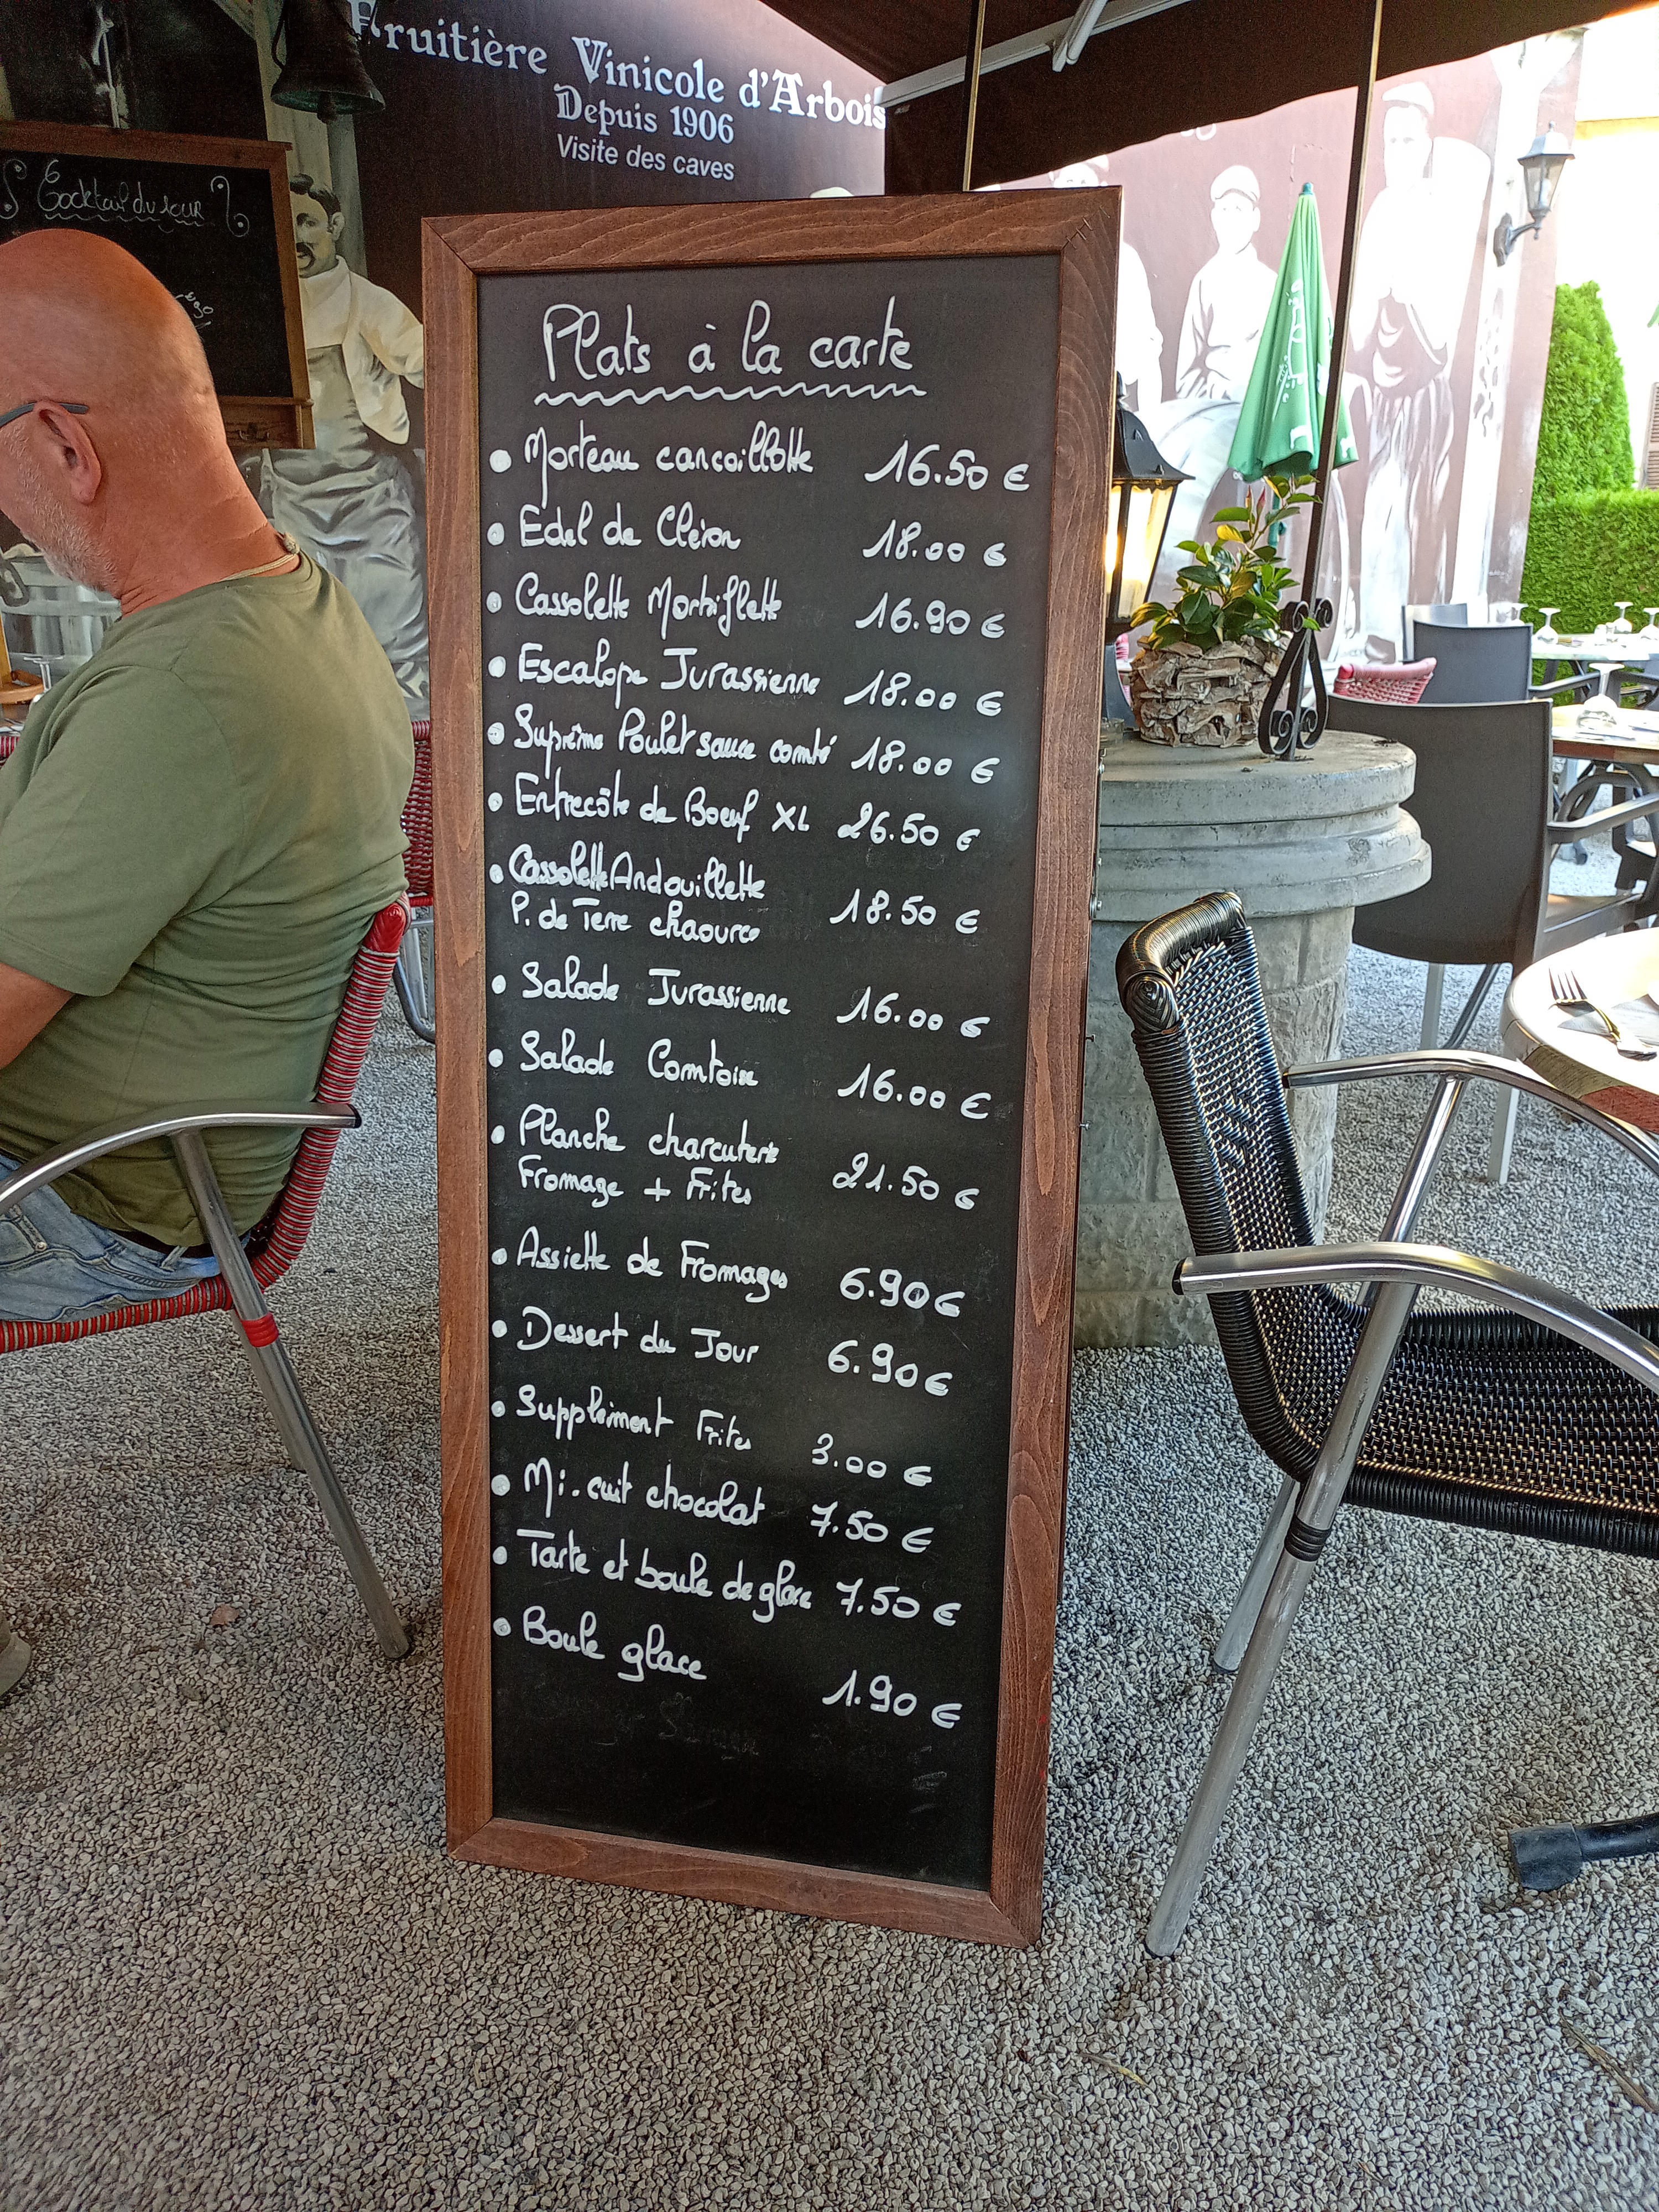 Fruitière Vinicole d'Arbois
Depuis 1906
Visite des caves
Cocktail du Jour
Plats à la carte
• Morteau cancoillotte 16.50 €
• Edel de Cléron 18.00 €
• Cassolette Morbiflette 16.90 €
• Escalope Jurassienne 18.00 €
• Suprême Poulet sauce comté 18.00 €
• Entrecôte de Boeuf XL 26.50 €
• Cassolette Andouillette
P. de Terre chaource 18.50 €
• Salade Jurassienne 16.00 €
• Salade Comtoise 16.00 €
• Planche charcuterie
Fromage + Frites 21.50 €
• Assiette de Fromages 6.90 €
• Dessert du Jour 6.90 €
• Supplément Frites 3.00 €
• Mi.cuit chocolat 7.50 €
• Tarte et boule de glace 7.50 €
• Boule glace 1.90 €